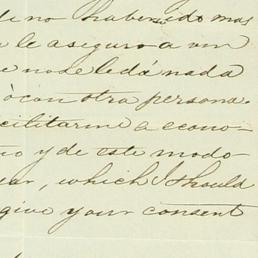 de no haber sido mas
le aseguro a vm
e no de le dá nada
ò con otra persona.
cilitarme a econo-
y de este modo
ear, which I should
give your consent